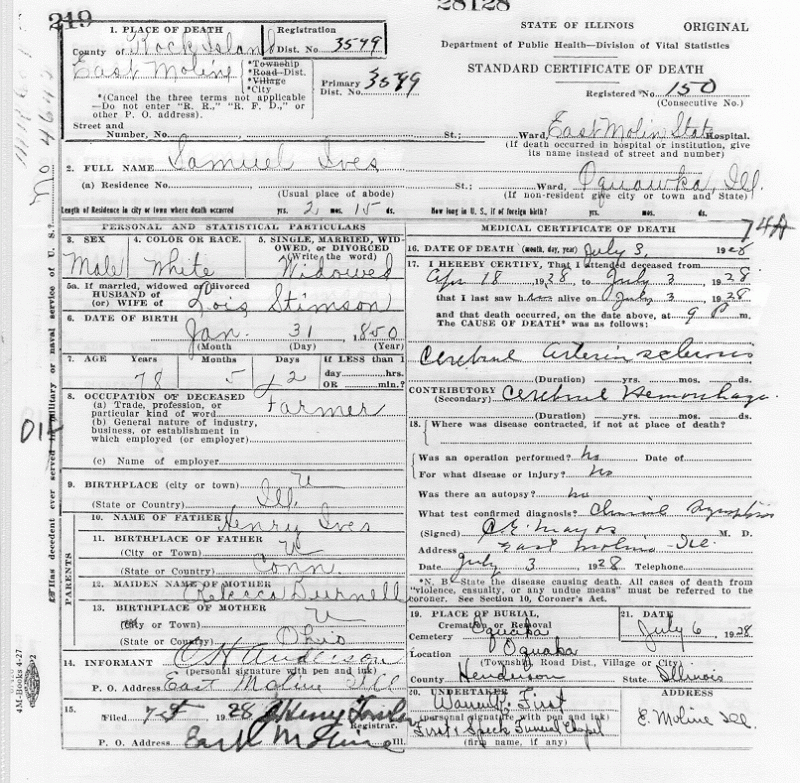 219
28128
1. PLACE OF DEATH
Registration
County of Rock Island Dist. No 3579
East Moline
*Township
*Road-Dist.
*Village
*City
Primary 3579
Dist. No.
*(Cancel the three terms not applicable
—Do not enter "R. R.," "R. F. D.," or
other P. O. address).
STATE OF ILLINOIS ORIGINAL
Department of Public Health—Division of Vital Statistics
STANDARD CERTIFICATE OF DEATH
Registered No. 150
(Consecutive No.)
Street and
Number, No. St.; Ward, East Molin State Hospital.
(If death occurred in hospital or institution, give
its name instead of street and number)
2. FULL NAME Samuel Ives
(a) Residence No. St.; Ward, Oquawka, Ill.
(Usual place of abode) (If non-resident give city or town and State)
Length of Residence in city or town where death occurred yrs. 2 mos. 15 ds. How long in U. S., if of foreign birth? yrs. mos. ds.
PERSONAL AND STATISTICAL PARTICULARS
3. SEX 4. COLOR OR RACE. 5. SINGLE, MARRIED, WID-
OWED, or DIVORCED
(Write the word)
Male White Widowed
5a. If married, widowed or divorced
HUSBAND of
(or) WIFE of Lois Stimson
6. DATE OF BIRTH
Jan. 31 1850
(Month (Day) (Year)
7. AGE Years Months Days If LESS than 1
day hrs.
78 5 2 OR min.?
8. OCCUPATION OF DECEASED
(a) Trade, profession, or
particular kind of word Farmer
(b) General nature of industry,
business, or establishment in
which employed (or employer)
(c) Name of employer
9. BIRTHPLACE (city or town) U
(State or Country) Ill.
PARENTS
10. NAME OF FATHER Henry Ives
11. BIRTHPLACE OF FATHER
(City or Town) U
(State or Country) Conn.
12. MAIDEN NAME OF MOTHER Rebecca Burnell
13. BIRTHPLACE OF MOTHER
(City or Town) U
(State or Country) Ohio
14. INFORMANT O H Anderson
(personal signature with pen and ink)
P. O. Address East Moline Ill
15.
Filed 7-5 1928 Henry
Registrar.
P. O. Address East Moline Ill.
MEDICAL CERTIFICATE OF DEATH 74A
16. DATE OF DEATH (month, day, year) July 3, 1928
17. I HEREBY CERTIFY, That I attended deceased from
Apr 18 1928, to July 3 1928
that I last saw him alive on July 3, 1928
and that death occurred, on the date above, at 9 P m.
The CAUSE OF DEATH* was as follows:
Cerebral Arteriosclerosis
(Duration) yrs. mos. ds.
CONTRIBUTORY Cerebral Hemorrhage
(Secondary)
(Duration) yrs. mos. ds.
18. Where was disease contracted, if not at place of death?
Was an operation performed? No Date of
For what disease or Injury? No
Was there an autopsy? No
What test confirmed diagnosis? Clinical Symptoms
(Signed) M. D.
Address East Moline Ill.
Date July 3 1928 Telephone
*N. B. State the disease causing death. All cases of death from
"violence, casualty, or any undue means" must be referred to the
coroner. See Section 10, Coroner's Act.
19. PLACE OF BURIAL, 21. DATE
Cremation or Removal
Cemetery Oquaka July 6, 1928
Location Oquaka
(Township, Road Dist., Village or City)
County Henderson State Illinois
20. UNDERTAKER ADDRESS
First
(personal signature with pen and ink) E. Moline Ill.
First & Speck Funeral Chapel
(firm name, if any)
Has decedent ever served in military or naval service of U. S.? No
4M-Books 4-27